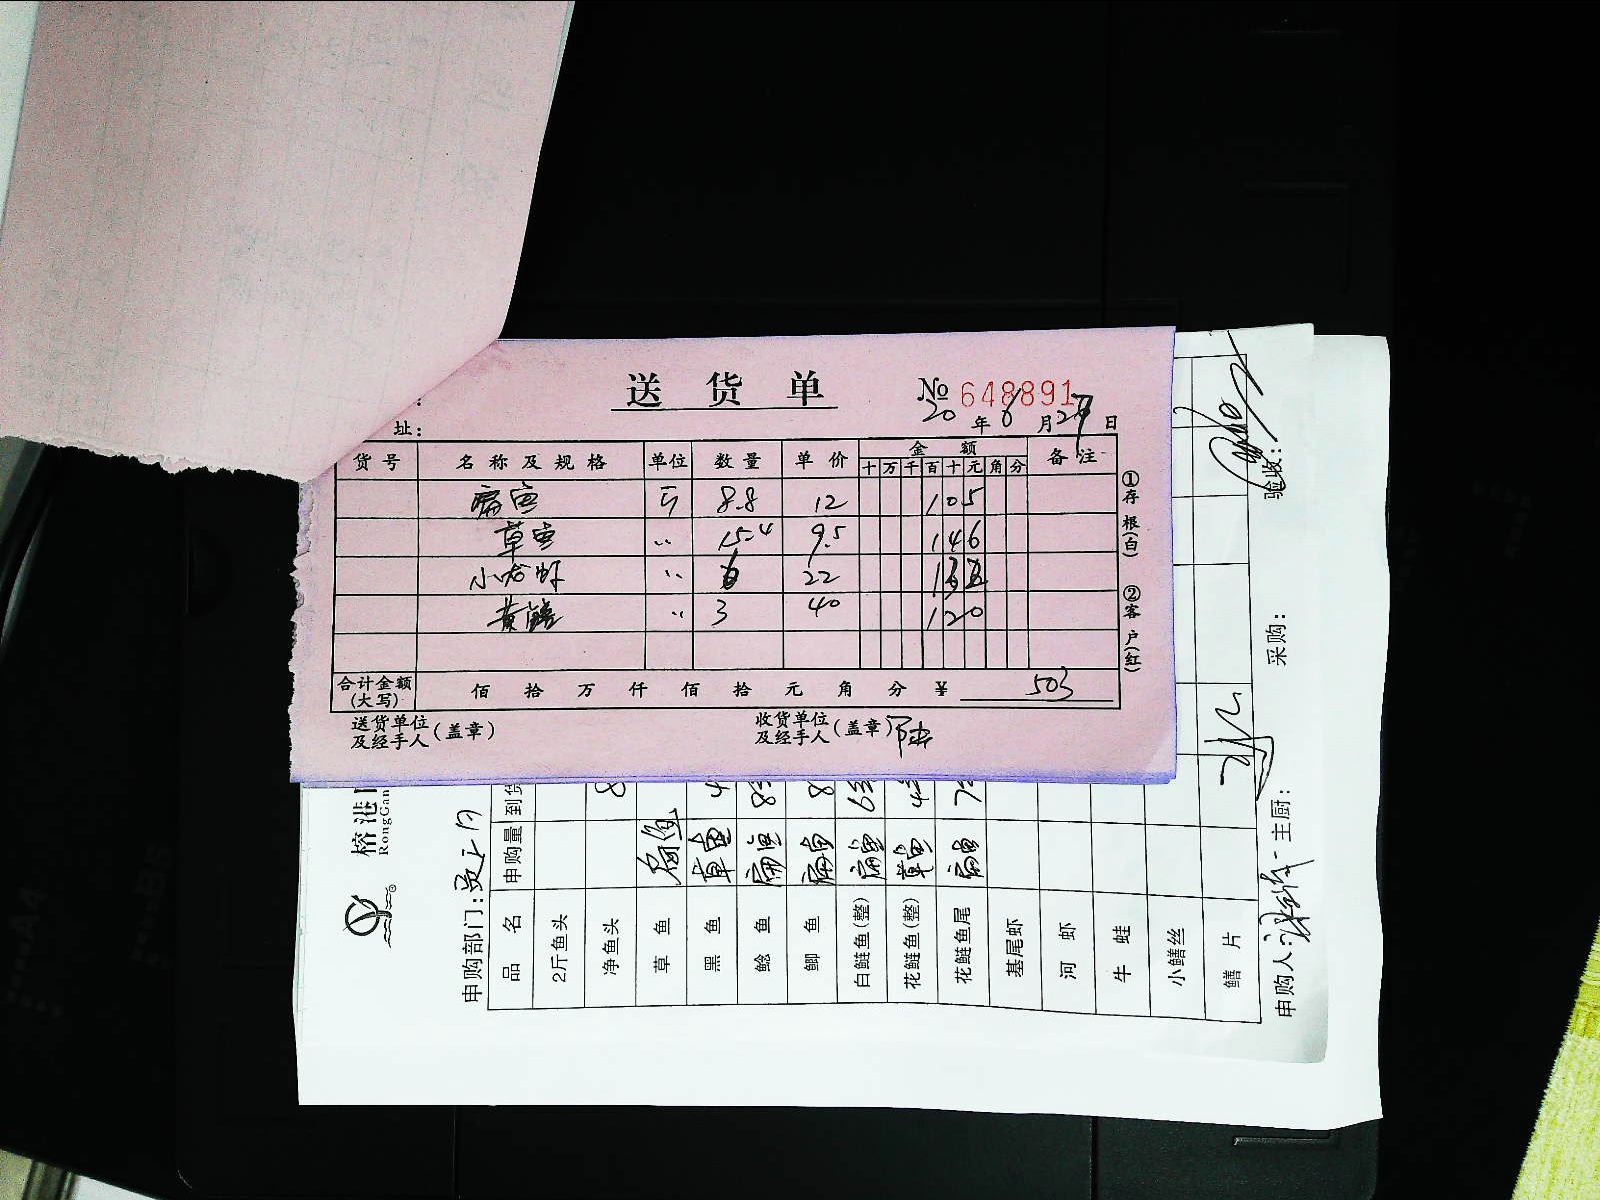 送 货 单 № 648891
址： 20 年 6 月 27 日
货号 名称及规格 单位 数量 单价 金额 备注
十 万 千 百 十 元 角 分
扁鱼 斤 8.8 12 105
草鱼 〃 15.4 9.5 146
小龙虾 〃 6 22 132
黄鳝 〃 3 40 120
合计金额(大写) 佰 拾 万 仟 佰 拾 元 角 分 ¥ 503
送货单位及经手人(盖章) 收货单位及经手人(盖章)
①存根(白) ②客户(红)
榕港
RongGan
申购部门:
品名 申购量 到货
2斤鱼头
净鱼头 8
草鱼
黑鱼 草鱼 4
鲶鱼 扁鱼
鲫鱼 扁鱼 8
白鲢鱼(整) 扁鱼
花鲢鱼(整) 草鱼
花鲢鱼尾 扁鱼
基尾虾
河虾
牛蛙
小鳝丝
鳝片
申购人: 主厨: 采购: 验收: